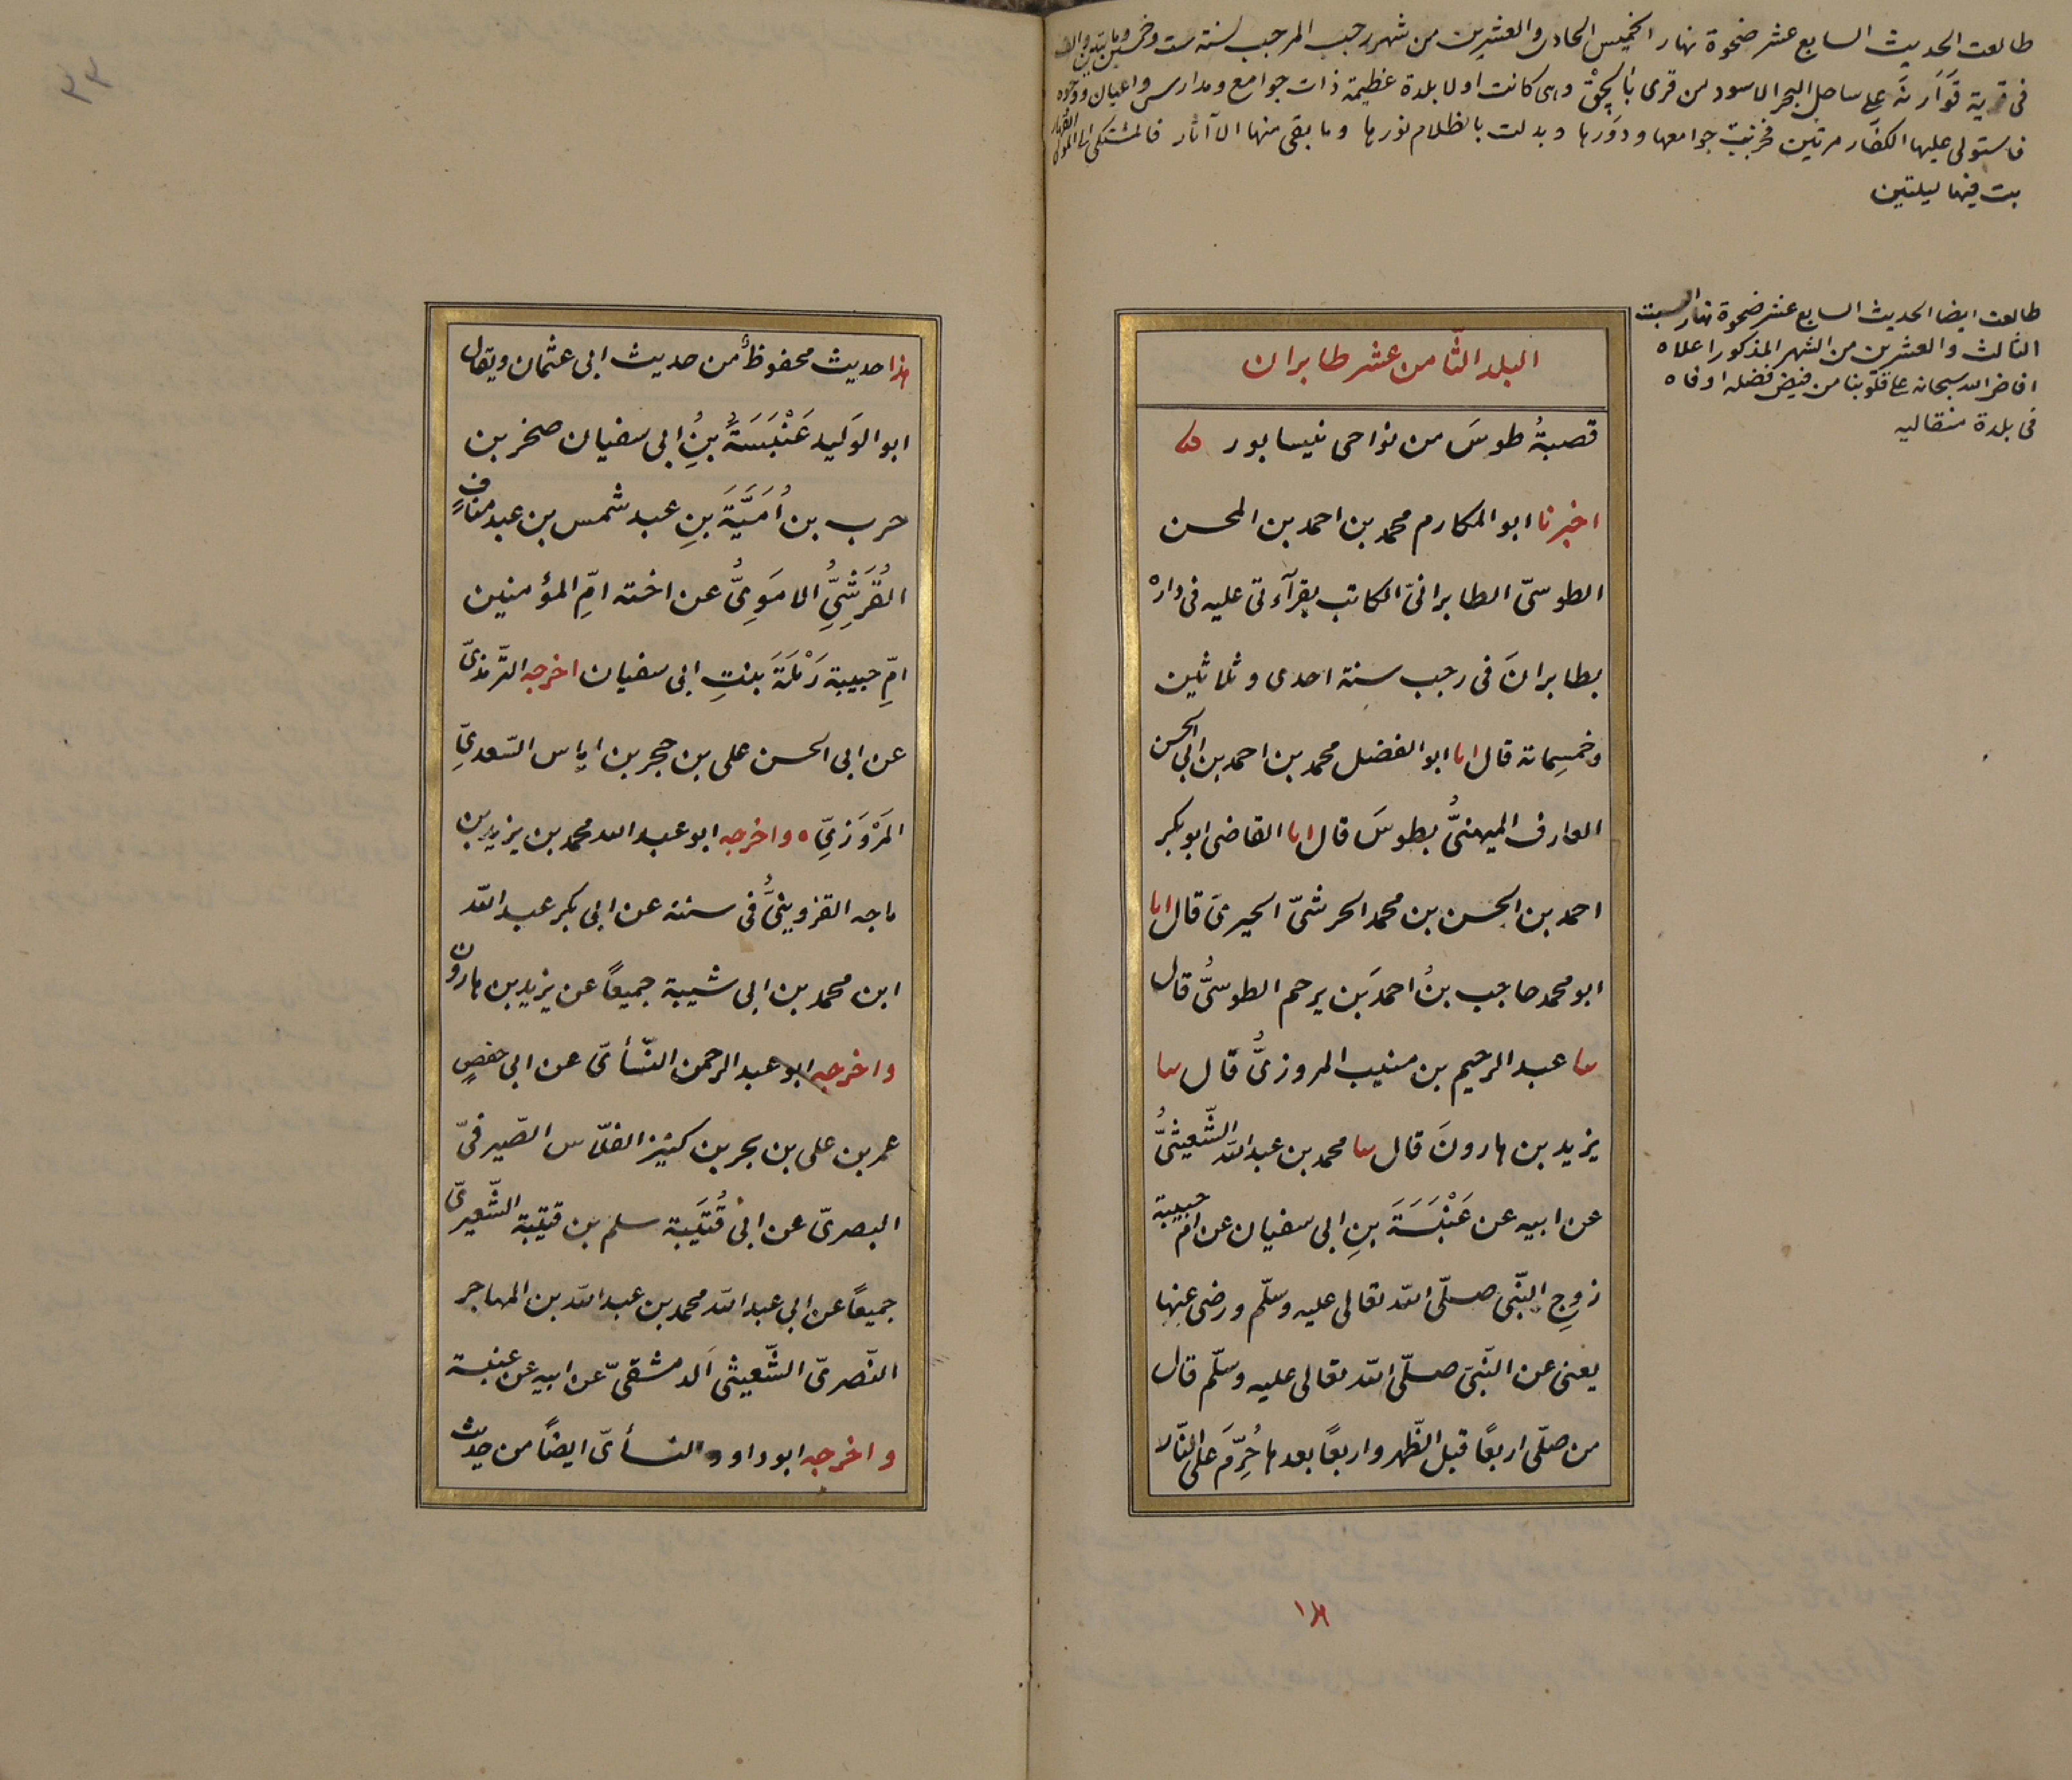 طالعت الحديث السابع عشر ضحوة نهار الخميس الحادى والعشرين من شهر رجب المرجب لسنة ست وخمسين ومائتين والف
فى قرية قَوَارنَه على ساحل البحر الاسود من قرى بالچق وهى كانت اولا بلدة عظيمة ذات جوامع ومدارس واعيان ووجوه
فاستولى عليها الكفار مرتين فخربت جوامعها ودورها وبدلت بالظلام نورها وما بقى منها الا آثار فالمشتكى الى المولى القهار
بت فيها ليلتين
طالعت ايضا الحديث السابع عشر ضحوة نهار السبت
الثالث والعشرين من الشهر المذكور اعلاه
افاض الله سبحانه على قلوبنا من فيض فضله اوفاه
فى بلدة منقاليه
البلد الثّامن عشر طابران
قصبةُ طوسَ من نواحى نيسابور
اخبرنا ابو المكارم محمد بن احمد بن المحسن
الطوسىّ الطابرانىّ الكاتب بقرآءتى عليه فى داره
بطابرانَ فى رجب سنة احدى وثلاثين
وخمسمائة قال انا ابو الفضل محمد بن احمد بن ابى الحسن
العارف الميهنىُّ بطوسَ قال انا القاضى ابو بكر
احمد بن الحسن بن محمد الحرشىّ الحيرىّ قال انا
ابو محمد حاجب بنُ احمدَ بن يرحم الطوسىُّ قال
ثنا عبد الرحيم بن منيب المروزىُّ قال ثنا
يزيد بن هارونَ قال ثنا محمد بن عبد الله الشّعيثىُّ
عن ابيه عن عَنْبَسَةَ بنِ ابى سفيان عن ام حبيبة
زوجِ النّبى صلّى الله تعالى عليه وسلّم ورضى عنها
يعنى عن النّبى صلّى الله تعالى عليه وسلّم قال
من صلّى اربعًا قبل الظّهر واربعًا بعدها حُرِّمَ على النّار
١٨
هذا حديث محفوظٌ من حديث ابى عثمان ويقال
ابو الوليد عَنْبَسَةُ بنُ ابى سفيان صخر بن
حرب بن أُمَيَّةَ بنِ عبد شمس بن عبد منافٍ
القُرَشِىِّ الامَوِىُّ عن اخته امّ المؤمنين
امّ حبيبة رَمْلَةَ بنتِ ابى سفيان اخرجه التّرمذىّ
عن ابى الحسن على بن حجر بن اياس السّعدىِّ
المَرْوَزِىِّ ه واخرجه ابو عبد الله محمد بن يزيد بن
ماجه القزوينىُّ فى سننه عن ابى بكر عبد الله
ابن محمد بن ابى شيبة جميعًا عن يزيد بن هارون
واخرجه ابو عبد الرحمن النّسأىّ عن ابى حفصٍ
عمر بن على بن بحر بن كنيز الفلّاس الصّيرفىّ
البصرىّ عن ابى قُتَيبة سلم بن قتيبة الشّعيرىّ
جميعًا عن ابى عبد الله محمد بن عبد الله بن المهاجر
النّصرىّ الشّعيثى الدمشقىّ عن ابيه عن عنبسة
واخرجه ابو داود والنسأىّ ايضًا من حديث